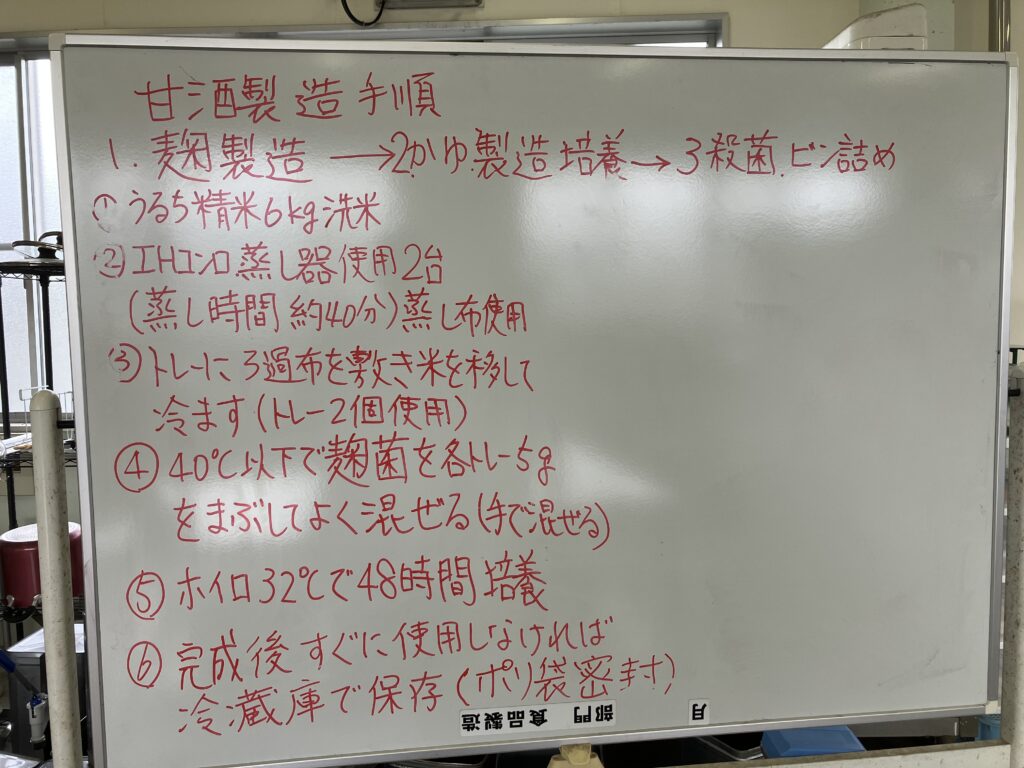 甘酒製造手順
1. 麹製造 →2.かゆ.製造培養→3殺菌.ビン詰め
①うるち精米6kg洗米
②IHコンロ蒸し器使用2台
(蒸し時間 約40分)蒸し布使用
③トレーにろ過布を敷き米を移して
冷ます(トレー2個使用)
④40℃以下で麹菌を各トレー5g
をまぶしてよく混ぜる(手で混ぜる)
⑤ホイロ32℃で48時間培養
⑥完成後すぐに使用しなければ
冷蔵庫で保存(ポリ袋密封)
月 部門 食品製造